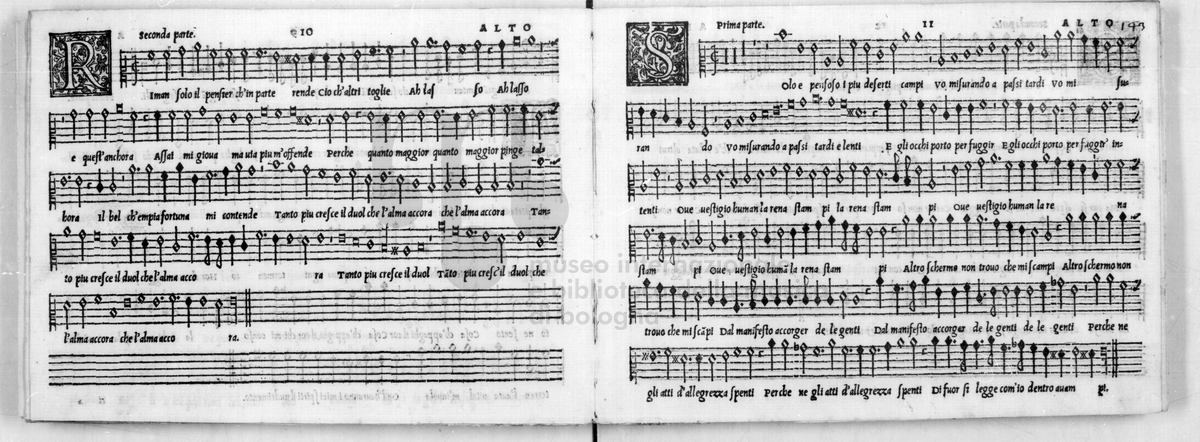 Seconda parte. 10 ALTO
R Iman solo il pensier ch'in parte rende Cio ch'altri toglie Ah las so Ah lasso
e quest'anchora Assai mi gioua ma uia piu m'offende Perche quanto maggior quanto maggior pinge tal-
hora Il bel ch'empia fortuna mi contende Tanto piu cresce il duol che l'alma accora che l'alma accora Tan-
to piu cresce il duol che l'alma acco ra Tanto piu cresce il duol Tāto piu cresc'il duol che
l'alma accora che l'alma acco ra.
Prima parte. 11 ALTO 143
S Olo e pensoso i piu deserti campi vo misurando a passi tardi vo mi su
ran do vo misurando a passi tardi e lenti E gli occhi porto per fuggir E gli occhi porto per fuggir in-
tenti Oue uestigio human la rena stam pi la rena stam pi Oue uestigio human la re na
stam pi Oue uestigio humā la rena stam pi Altro schermo non trouo che mi scampi Altro schermo non
trouo che mi scāpi Dal manifesto accorger de le genti Dal manifesto accorger de le genti de le genti Perche ne
gli atti d'allegrezza spenti Perche ne gli atti d'allegrezza spenti Di fuor si legge com'io dentro auam pi.
museo internazionale
e biblioteca della musica
di bologna